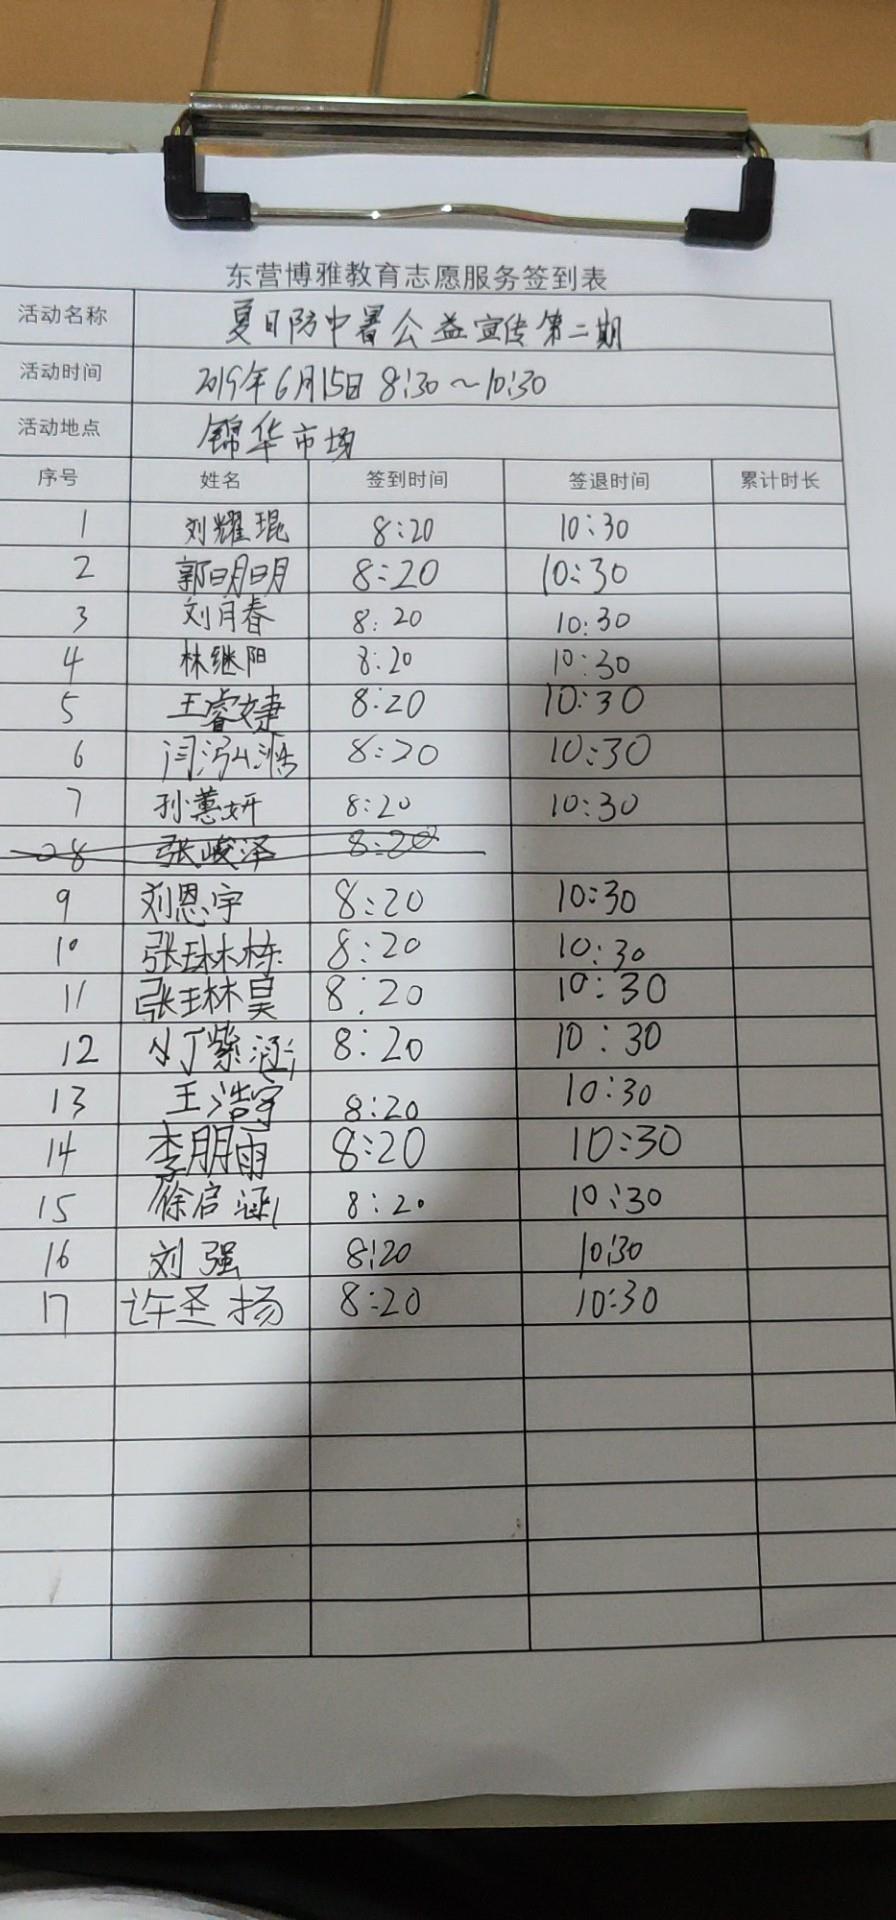 东营博雅教育志愿服务签到表
活动名称 夏日防中暑公益宣传第二期
活动时间 2019年6月15日 8:30~10:30
活动地点 锦华市场
序号 姓名 签到时间 签退时间 累计时长
1 刘耀琨 8:20 10:30
2 郭明明 8:20 10:30
3 刘月春 8:20 10:30
4 林继阳 8:20 10:30
5 王睿婕 8:20 10:30
6 闫泓 8:20 10:30
7 孙蕙妍 8:20 10:30
8 张峻泽 8:20
9 刘恩宇 8:20 10:30
10 张琳栋 8:20 10:30
11 张琳昊 8:20 10:30
12 丁紫涵 8:20 10:30
13 王浩宇 8:20 10:30
14 李朋雨 8:20 10:30
15 徐启涵 8:20 10:30
16 刘强 8:20 10:30
17 许圣扬 8:20 10:30